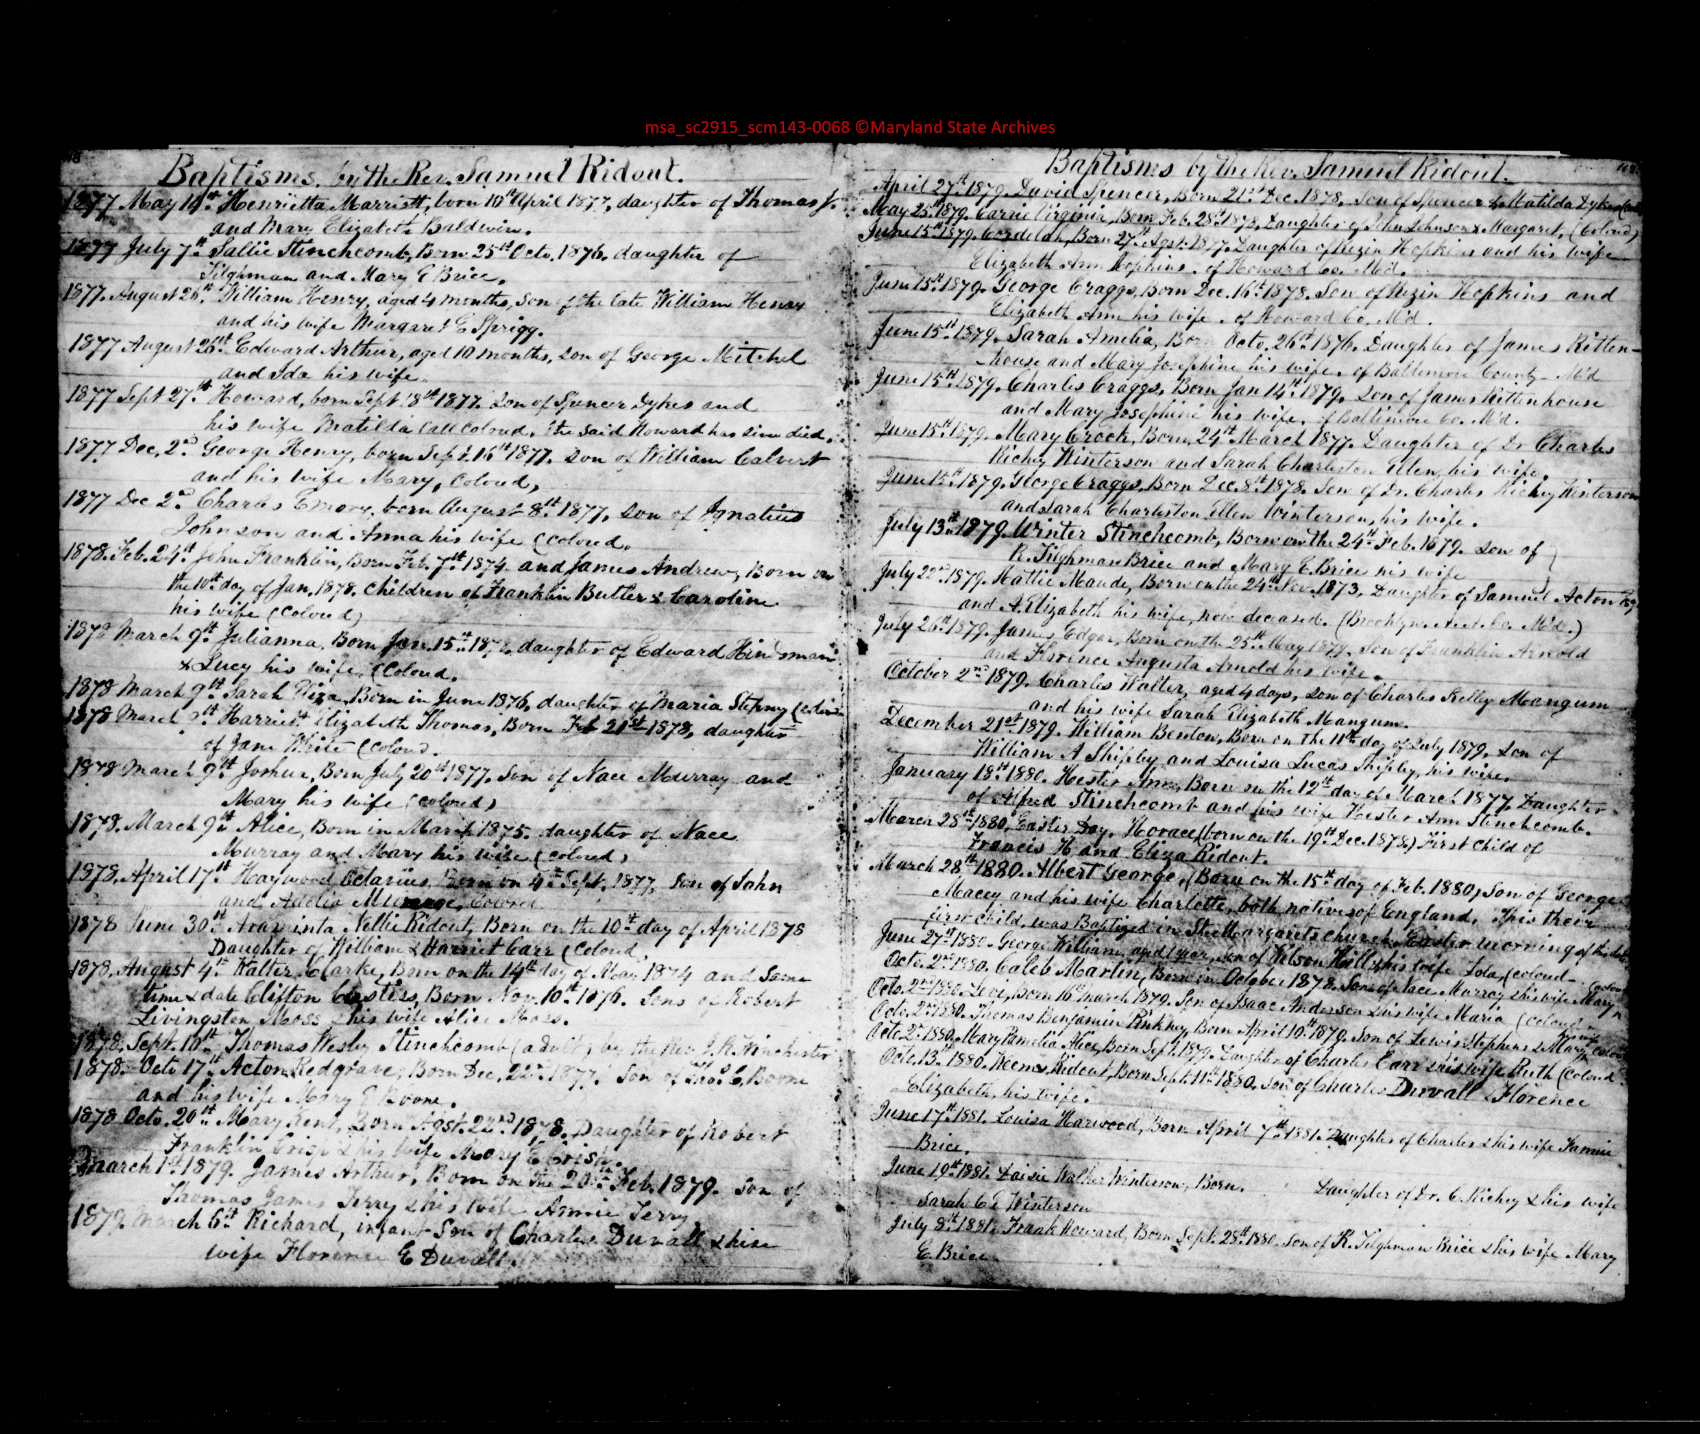 msa_sc2915_scm143-0068 ©Maryland State Archives
Baptisms, by the Rev. Samuel Ridout.
1877 May 10th Henrietta Marriott, born 10th April 1877, daughter of Thomas J.
and Mary Elizabeth Baldwin.
1877 July 7th Sallie Stinchcomb, Born 25th Octo. 1876, daughter of
Tilghman and Mary E Brice.
1877. August 26th William Henry, aged 4 months, Son of the late William Henry
and his wife Margaret E Sprigg.
1877 August 26th Edward Arthur, aged 10 months, Son of George Mitchel
and Ida his wife.
1877 Sept 27th Howard, born Sept 18th 1877. Son of Spencer Dykes and
his wife Matilda (all Colored, the said Howard has since died.
1877 Dec. 2nd George Henry, born Sept. 16th 1877. Son of William Calvert
and his wife Mary, Colored,
1877 Dec 2nd Charles Emory, born August 8th 1877, Son of Ignatius
Johnson and Anna his wife (Colored,
1878. Feb. 24th John Franklin, Born Feb. 7th 1874. and James Andrew, Born on
the 10th day of Jan. 1878. Children of Franklin Butler & Caroline
his wife (Colored)
1878 March 9th Julianna, Born Jan. 15th 1878, daughter of Edward Hindsman
& Lucy his wife, (Colored.
1878 March 9th Sarah Eliza, Born in June 1876, daughter of Maria Stepney
1878 March 9th Harriett Elizabeth Thomas, Born Feb 21st 1878, daughter
of Jane White (Colored.
1878 March 9th Joshua, Born July 20th 1877. Son of Nace Murray and
Mary his wife (Colored)
1878. March 9th Alice, Born in March 1875. daughter of Nace
Murray and Mary his wife (Colored)
1878. April 17th Haywood Octavius, Born on 4th Sept. 1877, Son of John
and Adelia Colored
1878 June 30th Araminta Nellie Ridout, Born on the 10th day of April 1878
Daughter of William & Harriet Carr (Colored,
1878. August 4th Walter Clarke, Born on the 14th day of May 1874 and Same
time & date Clifton Born Nov. 10th 1876. Sons of Robert
Livingston Moss & his wife Alice Moss.
1878. Sept. 10th Thomas Wesley Stinchcomb (adult) by the Rev. J. R. Winchester
1878. Octo 17th Acton Redgrave, Born Dec. 22nd 1877. Son of Thos. C. Boone
and his wife Mary E Boone.
1878 Octo. 20th Mary Kent, Born Agst. 22nd 1878. Daughter of Robert
Franklin Crisp & his wife Mary E Crisp.
March 1st 1879. James Arthur, Born on the 20th Feb. 1879. Son of
Thomas James Terry & his wife Annie Terry
1879. March 6th Richard, infant Son of Charles Duvall & his
wife Florence E Duvall.
Baptisms by the Rev. Samuel Ridout.
April 27th 1879. David Spencer, Born 21st Dec. 1878. Son of Spencer & Matilda Dykes
May 25th 1879. Carrie Virginia, Born Feb. 28th 1878, Daughter of John Johnson & Margaret, (Colored)
June 15th 1879. Cordelah, Born 27th Agst. 1877. Daughter of Rezin Hopkins and his wife
Elizabeth Ann Hopkins. of Howard Co. Md.
June 15th 1879. George Craggs, Born Dec. 16th 1878. Son of Rezin Hopkins and
Elizabeth Ann his wife. of Howard Co. Md.
June 15th 1879. Sarah Amelia, Born Octo. 26th 1876, Daughter of James Ritten-
house and Mary Josephine his wife. of Baltimore County Md
June 15th 1879. Charles Craggs, Born Jan 14th 1879, Son of James Rittenhouse
and Mary Josephine his wife. of Baltimore Co. Md.
June 15th 1879. Mary Crock, Born, 24th March 1877. Daughter of Dr Charles
Richey Winterson and Sarah Charleston Ellen, his wife.
June 15th 1879. George Craggs, Born Dec. 8th 1878. Son of Dr. Charles Richey Winterson
and Sarah Charleston Ellen Winterson, his wife.
July 13th 1879. Winter Stinchcomb, Born on the 24th Feb. 1879. Son of
R. Tilghman Brice and Mary E. Brice his wife
July 22nd 1879. Mattie Maude, Born on the 24th Nov. 1873, Daughter of Samuel Acton
and A. Elizabeth his wife, now deceased. (Brooklyn. A.A. Co. Md.)
July 26th 1879. James Edgar, Born on the 25th May 1879. Son of Franklin Arnold
and Florence Augusta Arnold his wife.
October 2nd 1879. Charles Walter, aged 4 days, Son of Charles Kelley Mangum
and his wife Sarah Elizabeth Mangum.
December 21st 1879. William Benton, Born on the 11th day of July 1879. Son of
William A Shipley and Louisa Lucas Shipley, his wife.
January 18th 1880. Hester Ann, Born on the 12th day of March 1877. Daughter
of Alfred Stinchcomb and his wife Hester Ann Stinchcomb.
March 28th 1880, Easter Day. Horace (born on the 19th Dec. 1878.) First child of
Francis H and Eliza Ridout.
March 28th 1880. Albert George, (Born on the 15th day of Feb. 1880) Son of George
Macey and his wife Charlotte, both natives of England. This their
first child, was Baptized in St. Margarets church Easter morning of the
June 27th 1880. George William, aged 1 year, Son of Wilson Hill & his wife Lola, (colored
Octo. 2nd 1880. Caleb Martin, (Born in October 1878. Son of Nace Murray & his wife Mary
Octo. 2nd 1880. Born 16th March 1879. Son of Isaac Anderson & his wife Maria (colored
Octo. 2nd 1880. Thomas Benjamin Pinkney Born April 10th 1879. Son of Lewis Stephens & Mary his wife Colored
Octo. 2nd 1880, Mary Pamelia Alice, Born Sept. 1879. Daughter of Charles Carr & his wife Ruth (Colored
Octo. 13th 1880. Weems Ridout, Born Sept. 11th 1880. Son of Charles Duvall & Florence
Elizabeth, his wife.
June 17th 1881. Louisa Harwood, Born April 7th 1881. Daughter of Charles & his wife Fannie
Brice.
June 19th 1881. Daisie Walker Winterson, Born. Daughter of Dr. C. Richey & his wife
Sarah C. E Winterson
July 8th 1881. Frank Howard, Born Sept. 28th 1880. Son of R. Tilghman Brice & his wife Mary
E. Brice